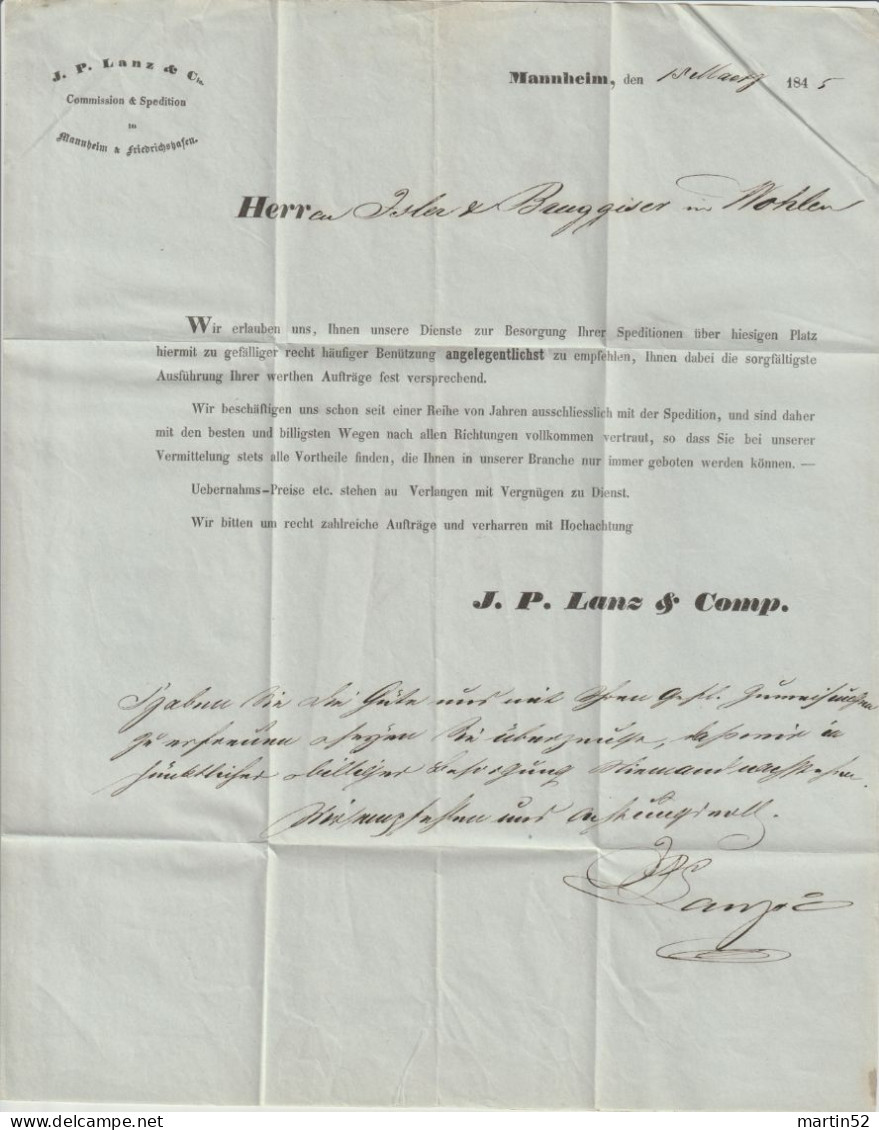 J. P. Lanz & Cie.
Commission & Spedition
in
Mannheim & Friedrichshafen.
Mannheim, den 18 Maerz 1845
Herren Isler & Bruggisser in Wohlen
Wir erlauben uns, Ihnen unsere Dienste zur Besorgung Ihrer Speditionen über hiesigen Platz
hiermit zu gefälliger recht häufiger Benützung angelegentlichst zu empfehlen, Ihnen dabei die sorgfältigste
Ausführung Ihrer werthen Aufträge fest versprechend.
Wir beschäftigen uns schon seit einer Reihe von Jahren ausschliesslich mit der Spedition, und sind daher
mit den besten und billigsten Wegen nach allen Richtungen vollkommen vertraut, so dass Sie bei unserer
Vermittelung stets alle Vortheile finden, die Ihnen in unserer Branche nur immer geboten werden können. —
Uebernahms-Preise etc. stehen au Verlangen mit Vergnügen zu Dienst.
Wir bitten um recht zahlreiche Aufträge und verharren mit Hochachtung
J. P. Lanz & Comp.
Haben Sie die Güte uns mit Ihren gefl. Zuweisungen
zu erfreuen & seyen Sie überzeugt, daß wir in
pünktlicher & billiger Besorgung Niemand nachstehen.
Wir empfehlen uns achtungsvoll.
JPLanz & C
martin52